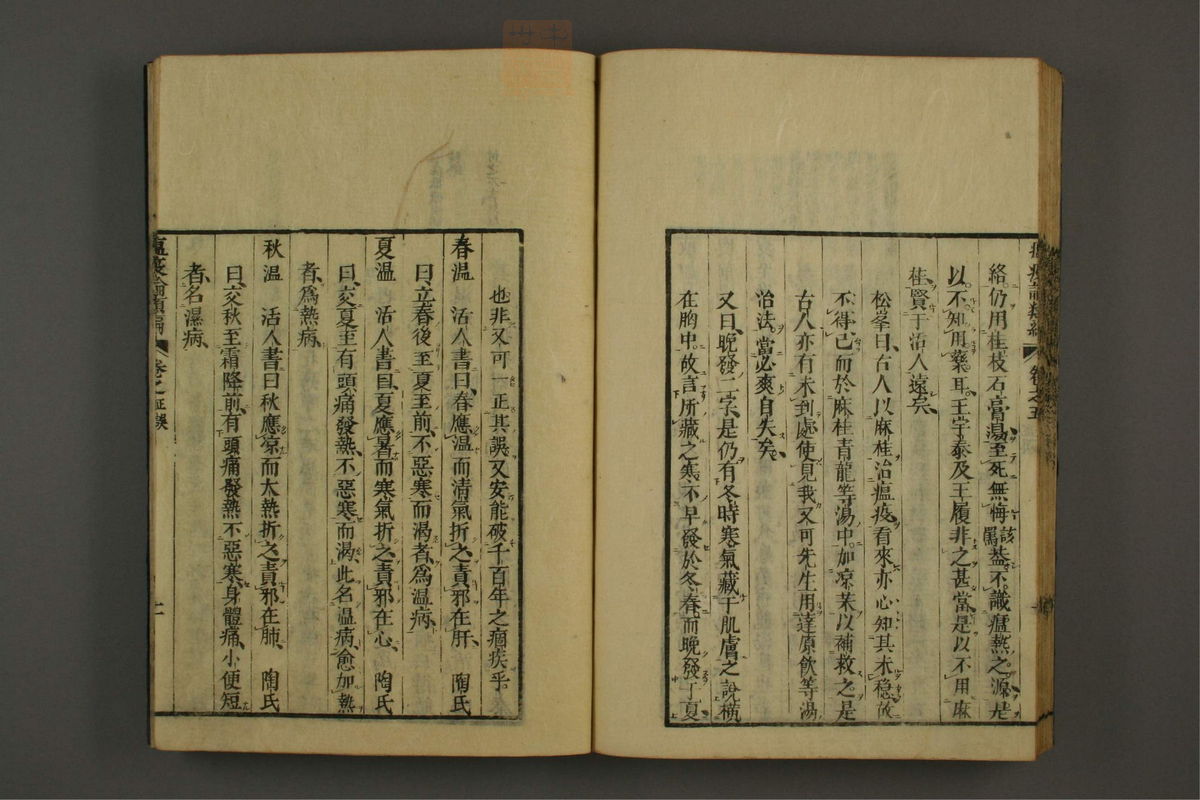 絡仍用桂枝石膏湯至死無悔該罵蓋不識瘟熱之源是
以不知用藥耳王宇泰及王履非之甚當是以不用麻
桂賢于活人遠矣
松峯曰古人以麻桂治瘟疫看來亦心知其未穩故
不得已而於麻桂青龍等湯中加凉藥以補救之是
古人亦有未到處使見我又可先生用達原飲等湯
治法當必爽自失矣
又曰晚發二字是仍有冬時寒氣藏于肌膚之說橫
在胸中故言所藏之寒不早發於冬春而晚發于夏
也非又可一正其誤又安能破千百年之痼疾乎
春温 活人書曰春應温而清氣折之責邪在肝 陶氏
曰立春後至夏至前不惡寒而渴者爲温病
夏温 活人書曰夏應暑而寒氣折之責邪在心 陶氏
曰交夏至有頭痛發熱不惡寒而渴此名温病愈加熱
者爲熱病
秋温 活人書曰秋應凉而大熱折之責邪在肺 陶氏
曰交秋至霜降前有頭痛發熱不惡寒身體痛小便短
者名濕病
瘟疫論類編 卷之五 正誤